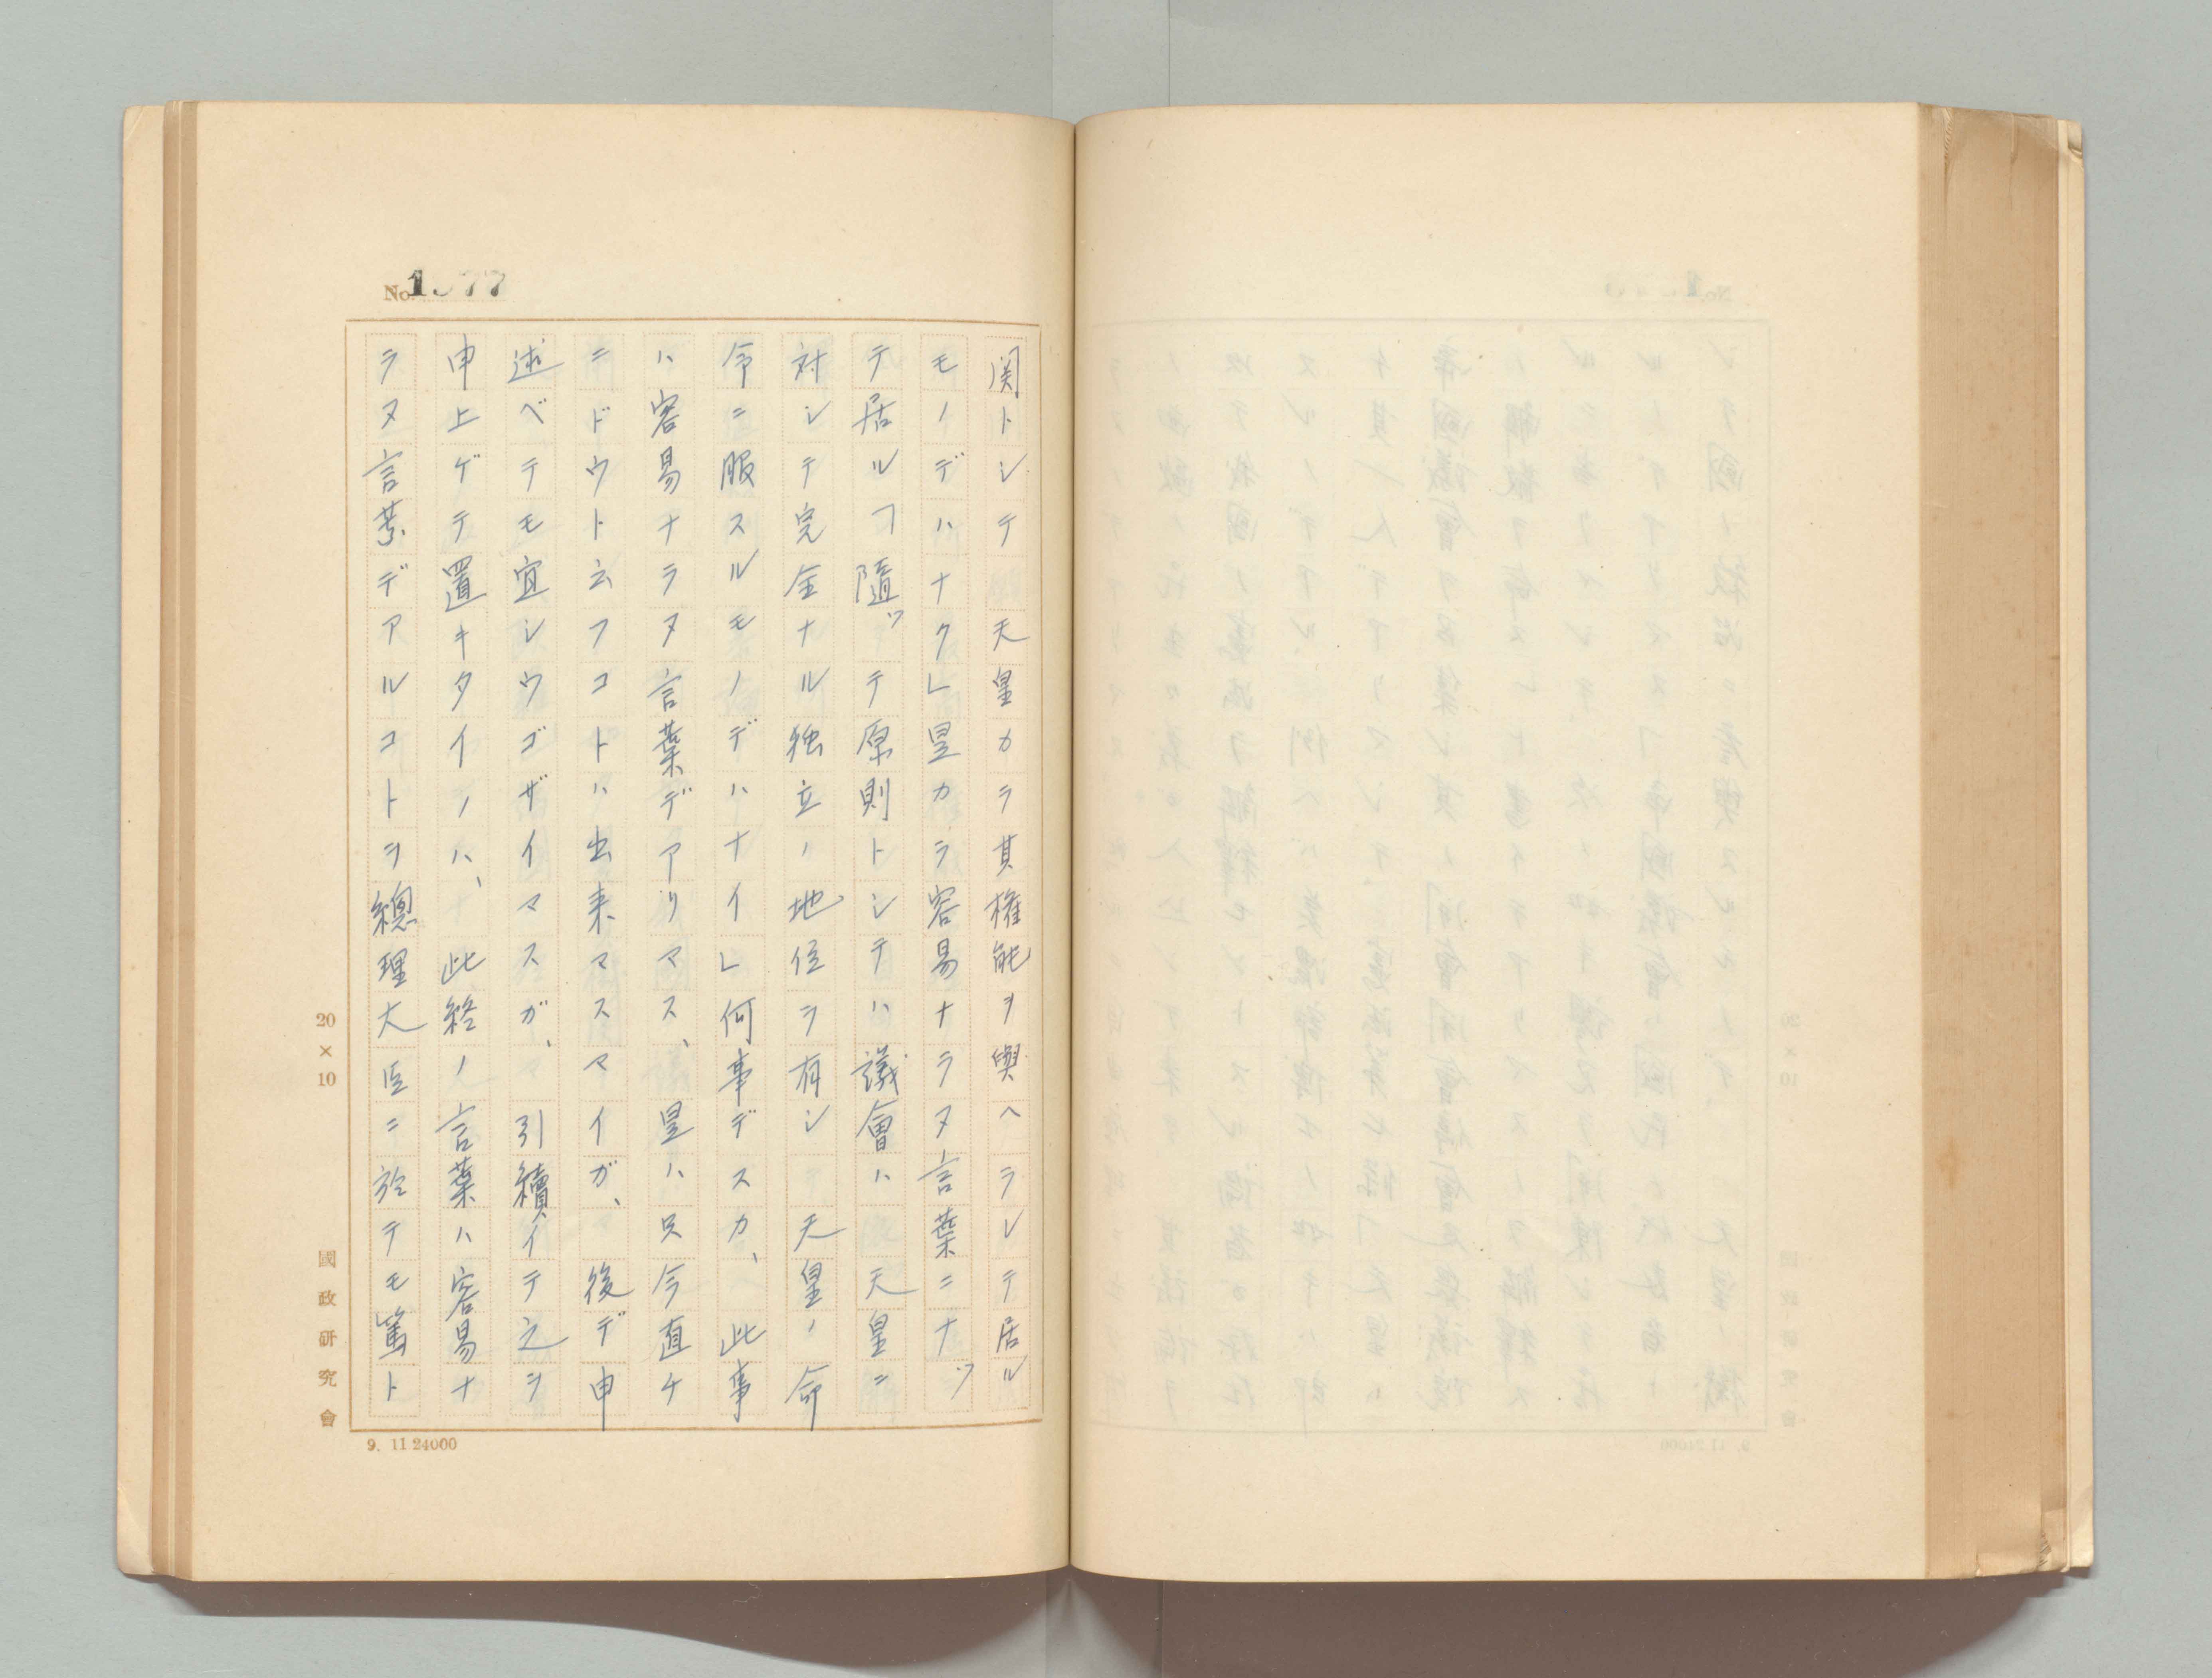 No. 1577
関トシテ 天皇カラ其権能ヲ與ヘラレテ居ル
モノデハナク」是カラ容易ナラヌ言葉ニナッ
テ居ル「隨ッテ原則トシテハ議會ハ 天皇ニ
対シテ完全ナル独立ノ地位ヲ有シ 天皇ノ命
令ニ服スルモノデハナイ」何事デスカ、此事
ハ容易ナラヌ言葉デアリマス、是ハ只今直チ
ニドウト云フコトハ出来マスマイガ、後デ申
述ベテモ宜シウゴザイマスガ、引續イテ之ヲ
申上ゲテ置キタイノハ、此終ノ言葉ハ容易ナ
ラヌ言葉デアルコトヲ總理大臣ニ於テモ篤ト
20×10
國政研究會
9. 11 24000